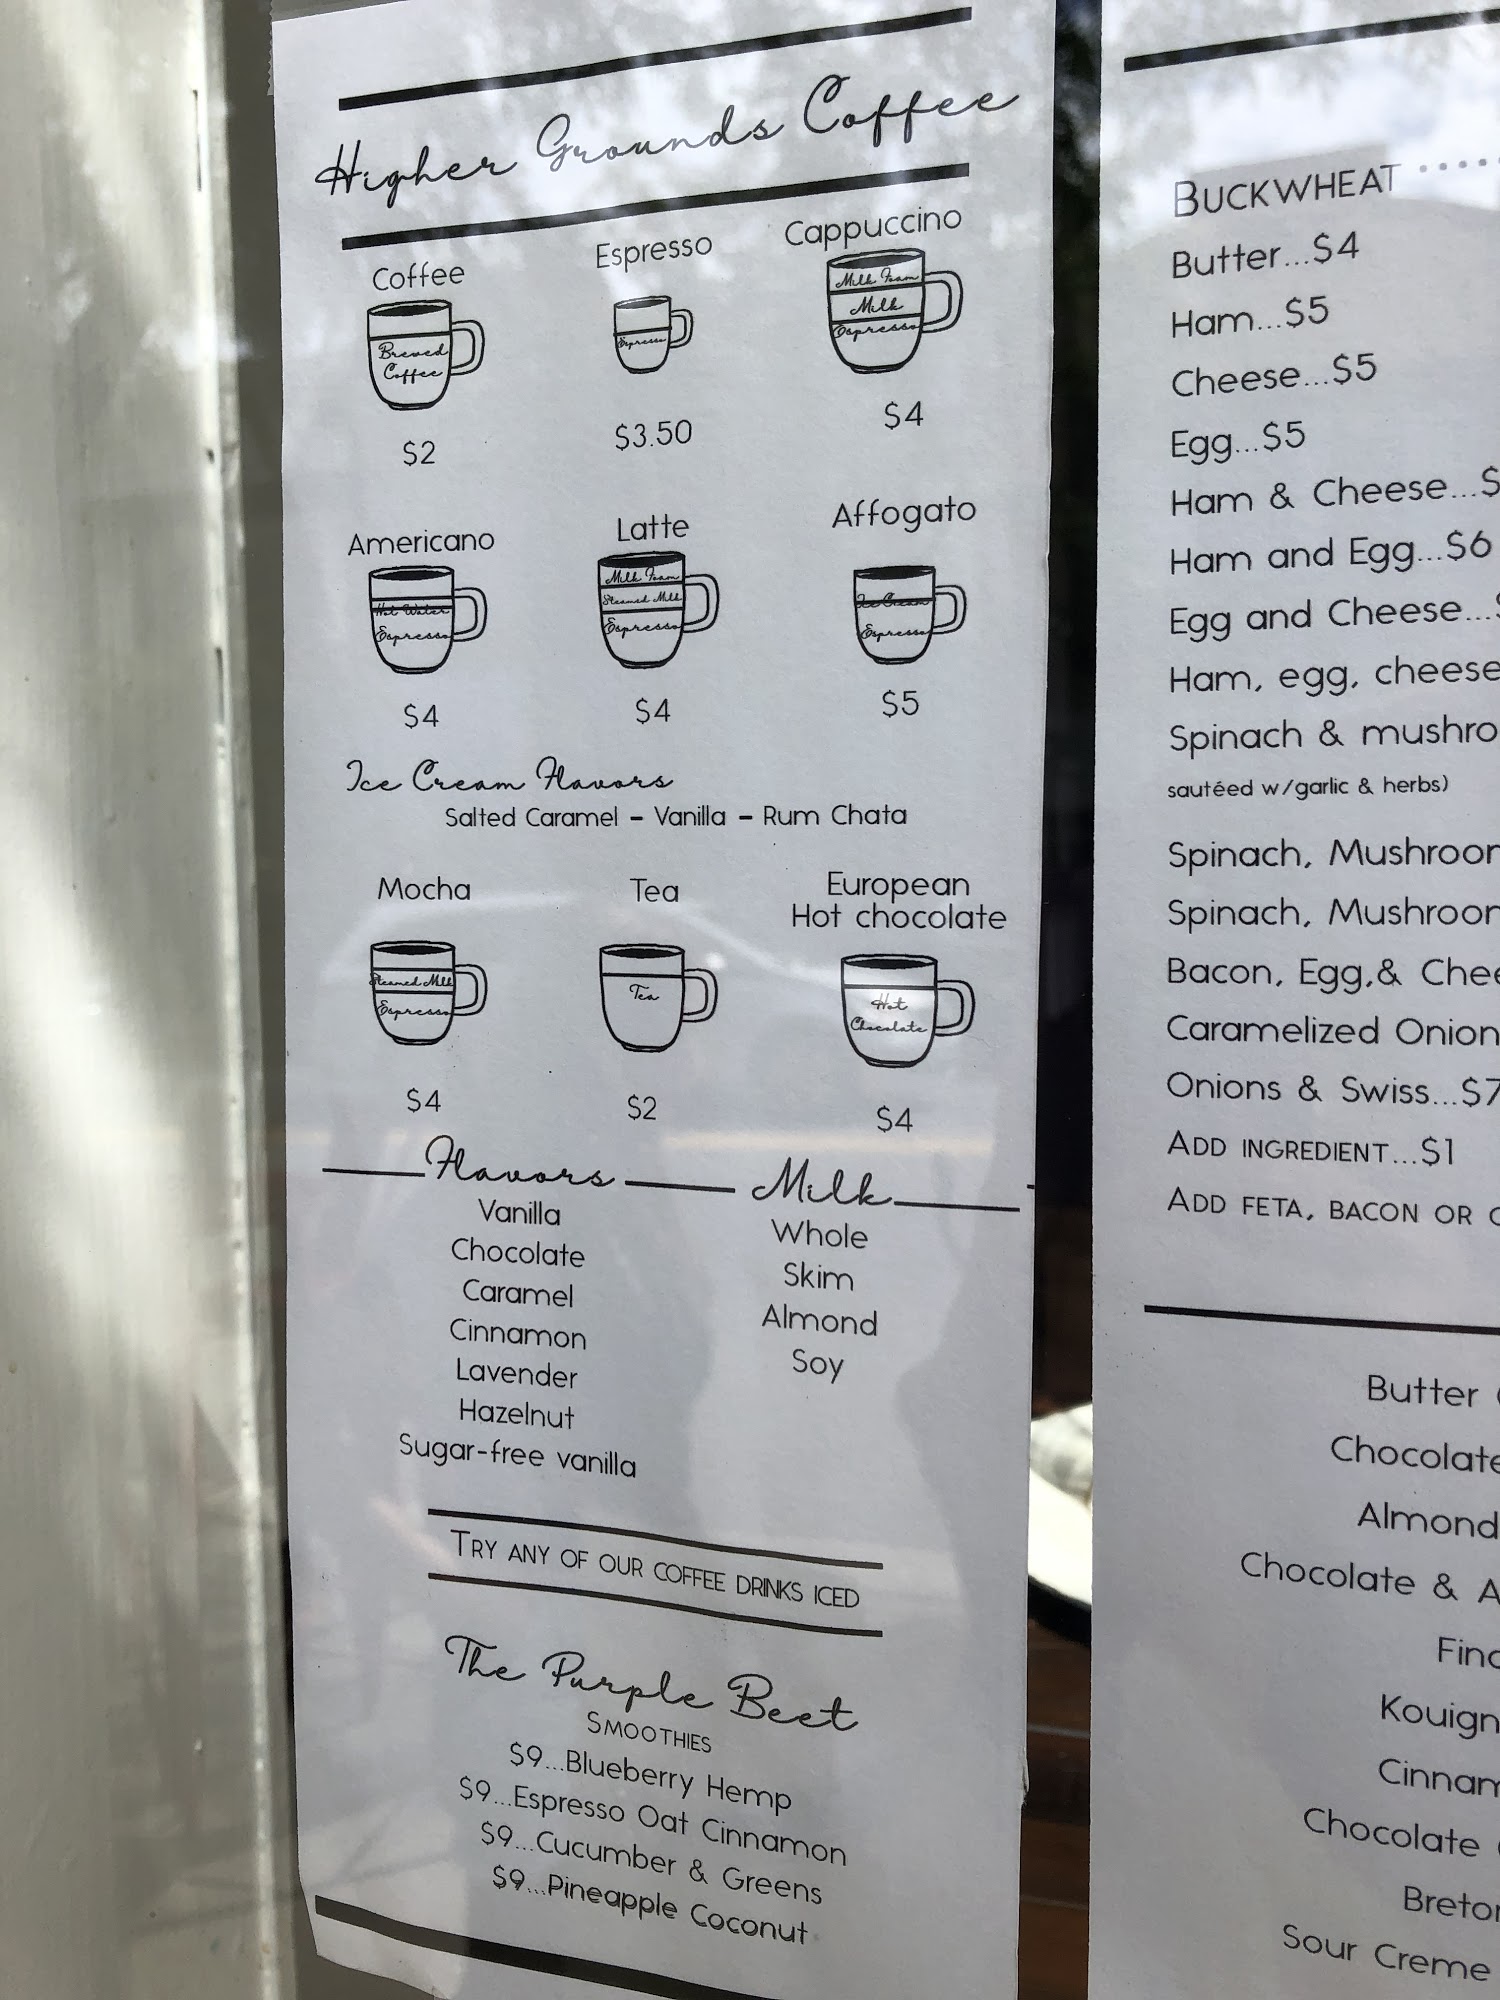 Higher Grounds Coffee
Coffee
Espresso
Cappuccino
Brewed
Coffee
Espresso
Milk Foam
Milk
Espresso
$2
$3.50
$4
Americano
Latte
Affogato
Hot Water
Espresso
Milk Foam
Steamed Milk
Espresso
Ice Cream
Espresso
$4
$4
$5
Ice Cream Flavors
Salted Caramel – Vanilla – Rum Chata
Mocha
Tea
European
Hot chocolate
Steamed Milk
Espresso
Tea
Hot
Chocolate
$4
$2
$4
Flavors
Vanilla
Chocolate
Caramel
Cinnamon
Lavender
Hazelnut
Sugar-free vanilla
Milk
Whole
Skim
Almond
Soy
TRY ANY OF OUR COFFEE DRINKS ICED
The Purple Beet
SMOOTHIES
$9...Blueberry Hemp
$9...Espresso Oat Cinnamon
$9...Cucumber & Greens
$9...Pineapple Coconut
BUCKWHEAT .....
Butter...$4
Ham...$5
Cheese...$5
Egg...$5
Ham & Cheese...$
Ham and Egg...$6
Egg and Cheese...
Ham, egg, cheese
Spinach &
sautéed w/garlic & herbs)
Spinach,
Spinach,
Bacon, Egg,&
Caramelized Onion
Onions & Swiss...$7
ADD INGREDIENT...$1
ADD FETA, BACON OR
Butter
Chocolate
Almond
Chocolate &
Chocolate
Sour Creme